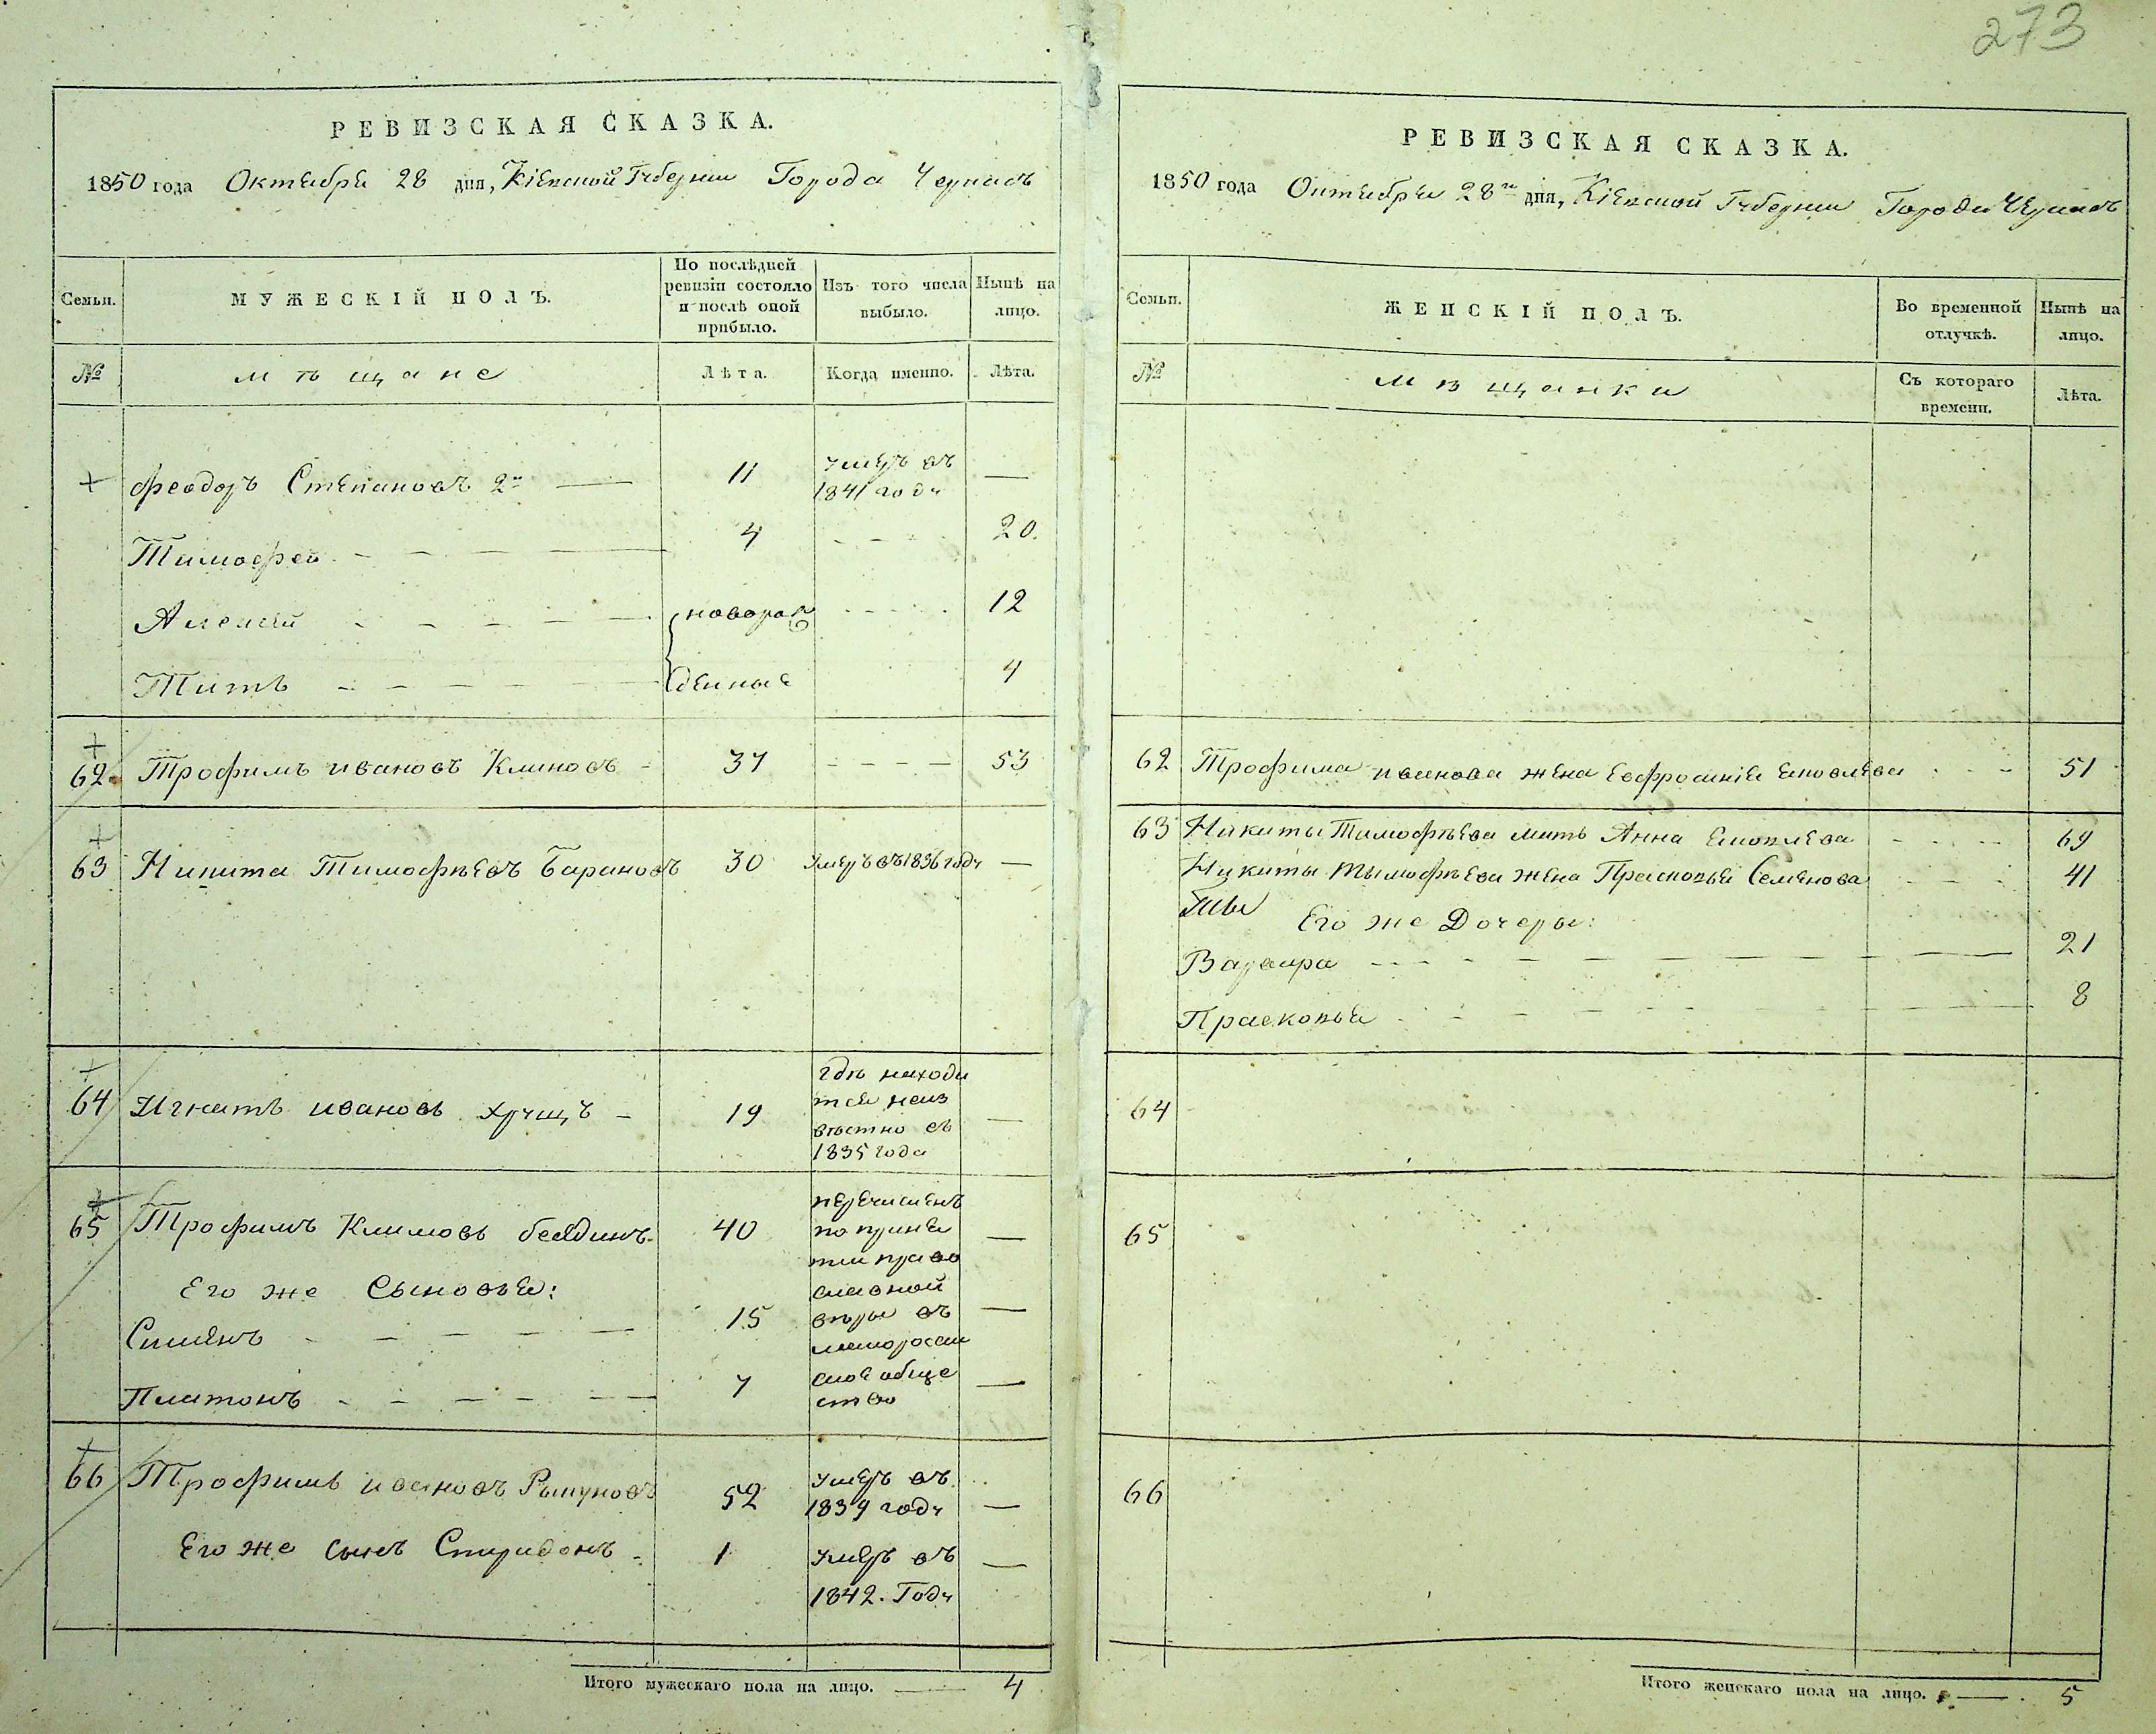 273
РЕВИЗСКАЯ СКАЗКА.
1850 года Октября 28 дня, Кіевской Губерніи Города Черкасъ
Семьи.
МУЖЕСКІЙ ПОЛЪ.
По послѣдней
ревизіи состояло
и послѣ оной
прибыло.
Изъ того числа
выбыло.
Нынѣ на
лицо.
№
мѣщане
Лѣта.
Когда именно.
Лѣта.
Феодоръ Степановъ 2й 11 умеръ въ —
1841 году
Тимофей 4 20.
Алексей новорож 12
Титъ денные 4
62 Трофимъ ивановъ Климовъ 37 53
63 Никита Тимофѣевъ Барановъ 30 Умеръ въ 1836 году —
64 Игнатъ ивановъ хрущъ 19 гдѣ находи
тся неиз
вѣстно съ —
1835 года
65 Трофимъ Климовъ 40 перечисленъ
по приня —
тіи право
Его же Сыновья: славной
Симёнъ 15 вѣры въ —
малоросій
Платонъ 7 ское обще —
ство
66 Трофимъ ивановъ 52 умеръ въ
1839 году —
Его же сынъ Спиридонъ 1 умеръ въ —
1842. Году
Итого мужескаго пола на лицо. — 4
РЕВИЗСКАЯ СКАЗКА.
1850 года Октября 28го дня, Кіевской Губерніи Города Черкасъ
Семьи.
ЖЕНСКІЙ ПОЛЪ.
Во временной
отлучкѣ.
Нынѣ на
лицо.
№
мѣщанки
Съ котораго
времени.
Лѣта.
62 Трофима иванова жена Евфросинія Яковлева 51
63 Никиты Тимофѣева мать Анна Яковлева 69
Никиты Тымофѣева жена Прасковья Семёнова 41
Его же Дочеры:
Варвара 21
Прасковья 8
64
65
66
Итого женскаго пола на лицо. — 5